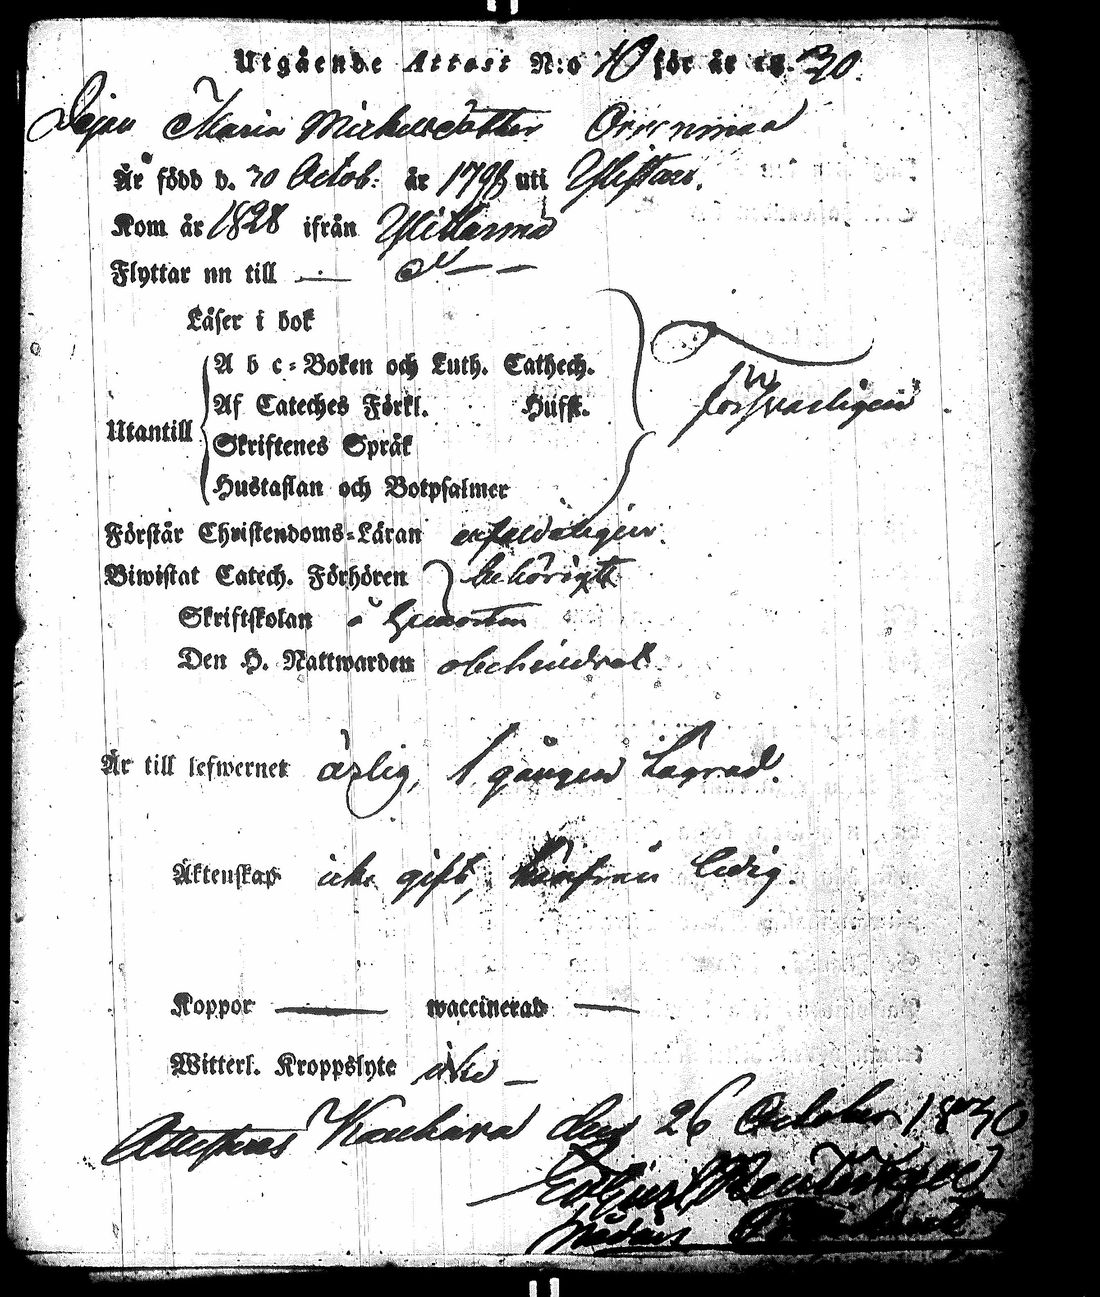 Utgående Attest N:o 10 för år 18 30.
Pigan Maria Michelsdotter
Är född d. 30 Octob: år 1798 uti Ylistaro.
Kom år 1828 ifrån Ylihärmä
Flyttar nu till —
Läser i bok
A b c-Boken och Luth. Catech.
Af Cateches Förkl. Husst.
Utantill
Skriftenes Språk
Hustaflan och Botpsalmer
försvarligen
Förstår Christendoms-Läran enfaldeligen.
Biwistat Catech. Förhören behörigt
Skriftskolan
Den H. Nattwarden obehindrat
Är till lefwernet ärlig, 1 gången lägrad.
Äktenskap icke gift, härifrån ledig
Koppor — waccinerad —
Witterl. Kroppslyte icke —
Attesteras Kauhava den 26 October 1830